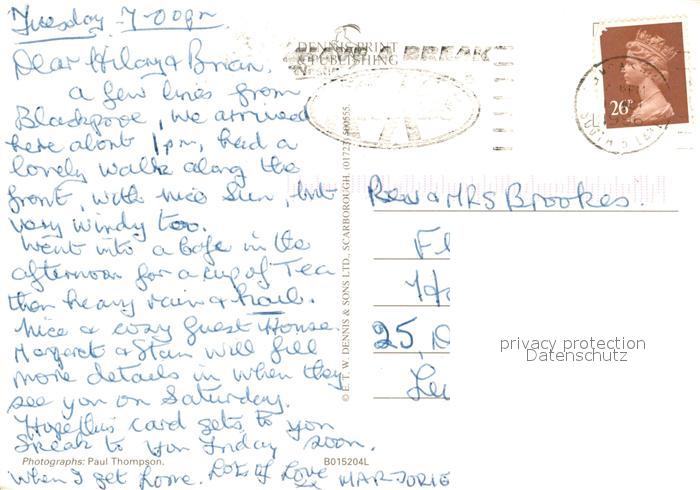 Tuesday 7-00pm
Dear Hilary & Brian.
a few lines from
Blackpool, we arrived
here about 1pm, had a
lovely walk along the
front, with nice Sun, but
very windy too.
Went into a Cafe in the
afternoon for a cup of Tea
then heavy rain & hail.
Nice & cosy Guest House.
Margaret & Stan will fill
more details in when they
see you on Saturday.
Hope this card gets to you
Speak to you Friday soon.
when I get home. Lots of Love
xx MARJORIE
Photographs: Paul Thompson.
B015204L
DENNIS PRINT
& PUBLISHING
A BREAK
© E. T. W. DENNIS & SONS LTD., SCARBOROUGH. (01723) 500555.
26P
Rev & MRS Brookes.
Fl
25, D
privacy protection
Datenschutz